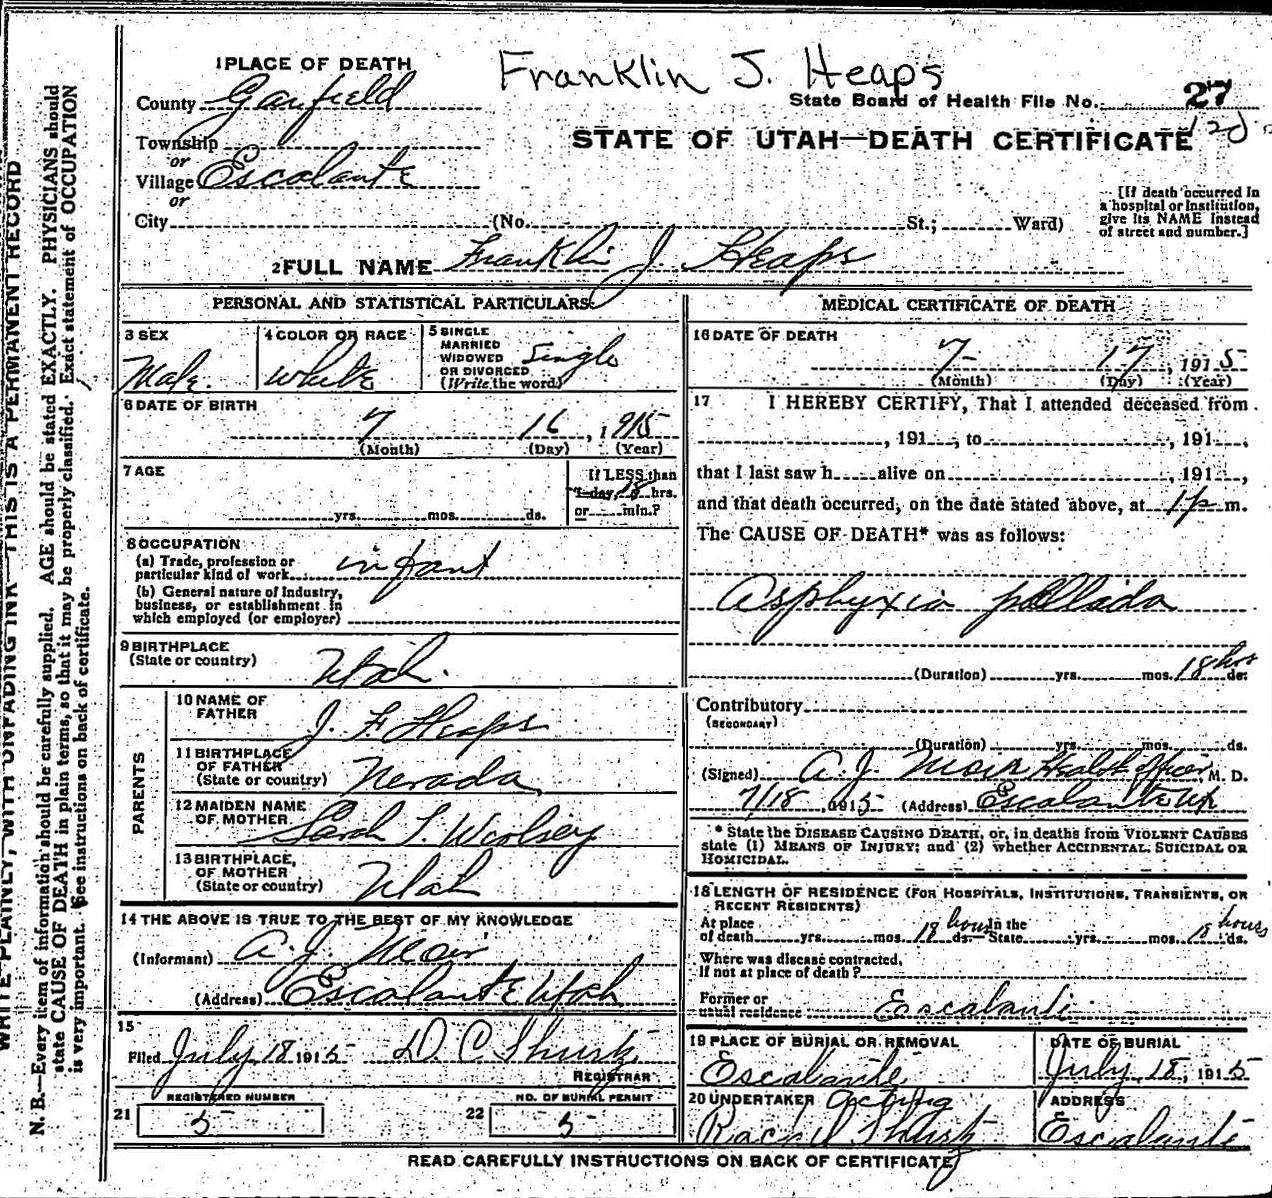 Franklin J. Heaps
1 PLACE OF DEATH
County Garfield
State Board of Health File No. 27
Township
or
STATE OF UTAH—DEATH CERTIFICATE
Village Escalante
or
City (No. St.; Ward)
[If death occurred in
a hospital or institution,
give its NAME instead
of street and number.]
2 FULL NAME Franklin J. Heaps
PERSONAL AND STATISTICAL PARTICULARS
3 SEX
Male.
4 COLOR OR RACE
White
5 SINGLE
MARRIED
WIDOWED
OR DIVORCED
(Write the word)
Single
6 DATE OF BIRTH
7 16, 1915
(Month) (Day) (Year)
7 AGE
yrs. mos. ds.
If LESS than
1 day, 18 hrs.
or min.?
8 OCCUPATION
(a) Trade, profession or
particular kind of work infant
(b) General nature of Industry,
business, or establishment in
which employed (or employer)
9 BIRTHPLACE
(State or country) Utah.
PARENTS
10 NAME OF
FATHER J. F. Heaps
11 BIRTHPLACE
OF FATHER
(State or country) Nevada
12 MAIDEN NAME
OF MOTHER Sarah S. Woolsey
13 BIRTHPLACE,
OF MOTHER
(State or country) Utah
14 THE ABOVE IS TRUE TO THE BEST OF MY KNOWLEDGE
(Informant) A. J. Moir
(Address) Escalante Utah
15
Filed July 18 1915
REGISTRAR
REGISTERED NUMBER
21 5
NO. OF BURIAL PERMIT
22 5
MEDICAL CERTIFICATE OF DEATH
16 DATE OF DEATH
7 17, 1915
(Month) (Day) (Year)
17 I HEREBY CERTIFY, That I attended deceased from
, 191 , to , 191 ,
that I last saw h alive on , 191 ,
and that death occurred, on the date stated above, at 1 p m.
The CAUSE OF DEATH* was as follows:
Asphyxia pallada
(Duration) yrs. mos. 18 hrs ds.
Contributory
(SECONDARY)
(Duration) yrs. mos. ds.
(Signed) A. J. Moir Health officer M. D.
7/18, 1915 (Address) Escalante Ut
* State the DISEASE CAUSING DEATH, or, in deaths from VIOLENT CAUSES
state (1) MEANS OF INJURY; and (2) whether ACCIDENTAL, SUICIDAL OR
HOMICIDAL.
18 LENGTH OF RESIDENCE (FOR HOSPITALS, INSTITUTIONS, TRANSIENTS, OR
RECENT RESIDENTS)
At place
of death yrs. mos. 18 hours ds. In the
State yrs. mos. 18 hours ds.
Where was disease contracted,
If not at place of death?
Former or
usual residence Escalante
19 PLACE OF BURIAL OR REMOVAL
Escalante
DATE OF BURIAL
July 18, 1915
20 UNDERTAKER Acting
ADDRESS
Escalante
READ CAREFULLY INSTRUCTIONS ON BACK OF CERTIFICATE
WRITE PLAINLY, WITH UNFADING INK—THIS IS A PERMANENT RECORD
N. B.—Every item of information should be carefully supplied. AGE should be stated EXACTLY. PHYSICIANS should
state CAUSE OF DEATH in plain terms, so that it may be properly classified. Exact statement of OCCUPATION
is very important. See instructions on back of certificate.